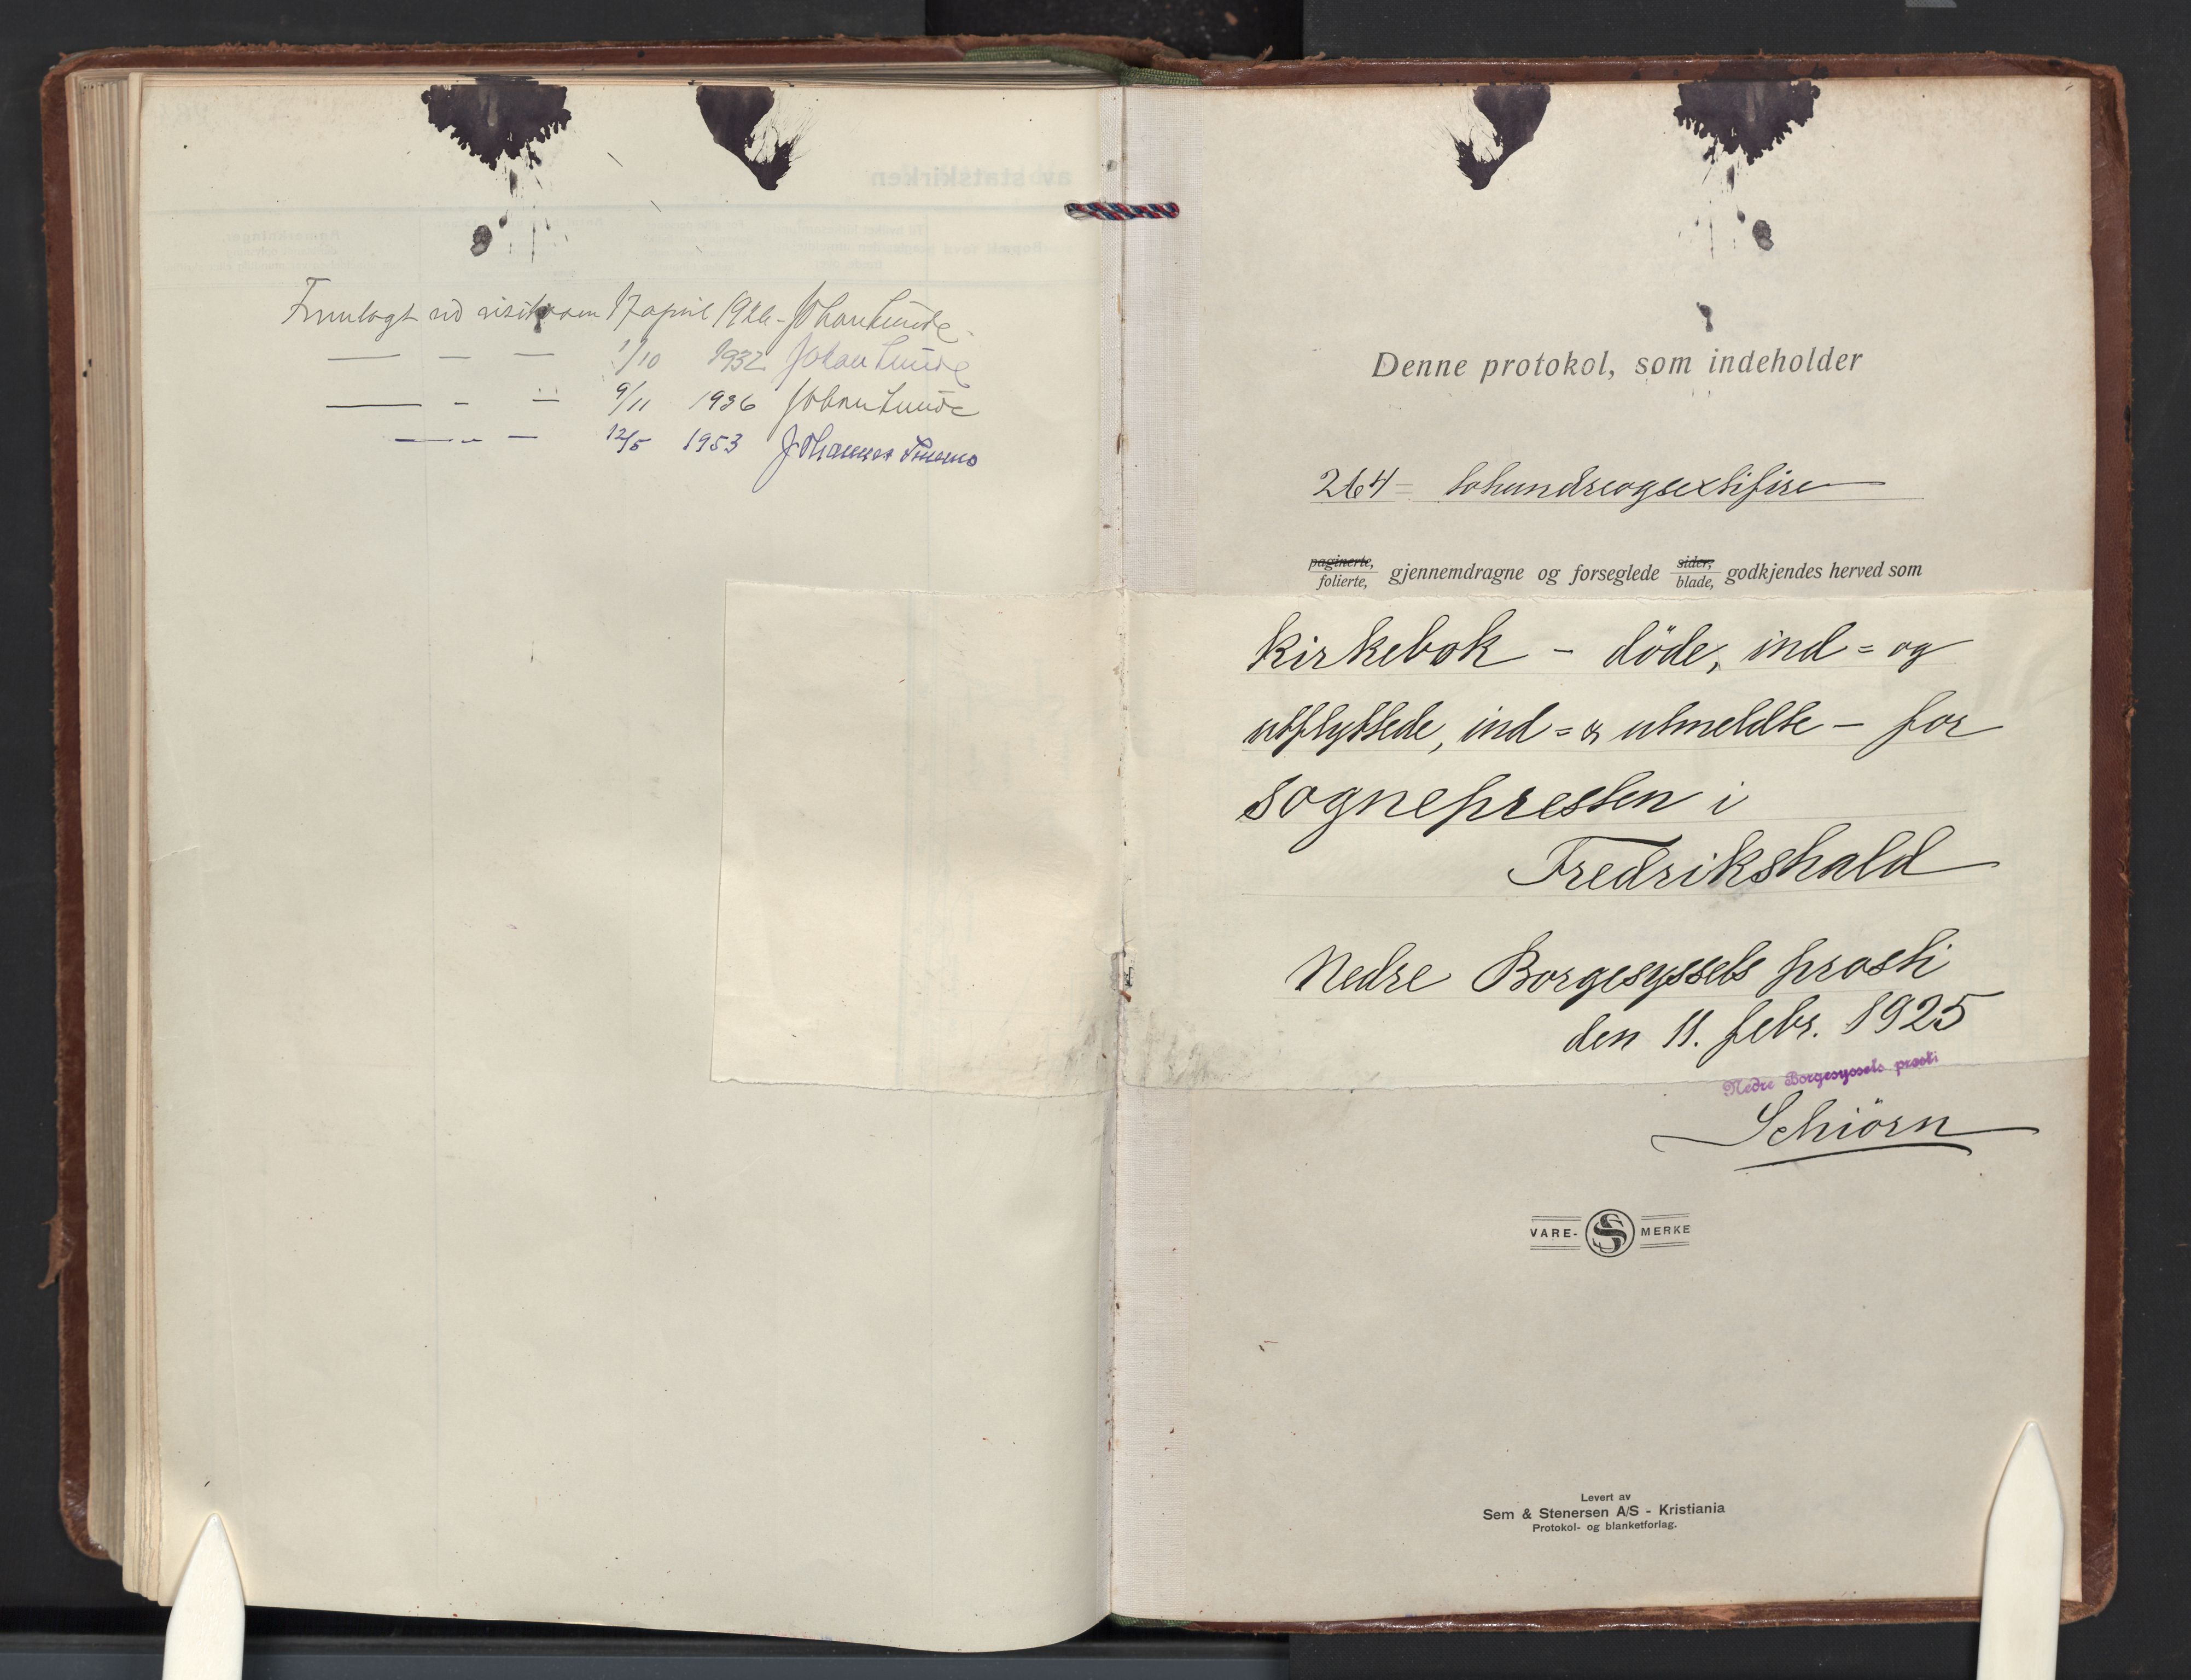 Fremlagt ved visitasen 17 april 1926 - Johan Lunde
— — — 1/10 1932 Johan Lunde
— - — 9/11 1936 Johan Lunde
— - — 12/5 1953 Johannes Smemo
Denne protokol, som indeholder
264 = tohundreogsextifire
paginerte, folierte, gjennemdragne og forseglede sider, blade, godkjendes herved som
kirkebok - döde, ind = og
utflyttede, ind = & utmeldte - for
sognepresten i
Fredrikshald
Nedre Borgesyssels prosti
den 11. febr. 1925
Nedre Borgesyssels prosti
Schiörn
VARE- S MERKE
Levert av
Sem & Stenersen A/S - Kristiania
Protokol- og blanketforlag.